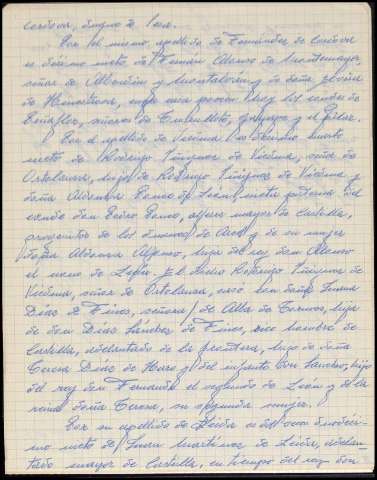 Cordova, digno de leer.
Por el mismo apellido de Fernández de Cordova
es décimo nieto de Fernán Alonso de Montemayor,
señor de Albendín y Montalbán y de doña
de Henestrosa, cuya casa poseen hoy los condes de
señores de y el
Por el apellido de Viedma es décimo cuarto
nieto de Rodrigo Yñiguez de Viedma, señor de
Ortolanca, hijo de Rodrigo Yñiguez de Viedma y
doña Aldonza Ponce de León, nieta paterna del
conde don Pedro Ponce, alferez mayor de Castilla,
progenitor de los duques de Arcos y de su mujer
doña Aldonza Alfonso, hija del rey don Alonso
el nono de León. El dicho Rodrigo Yñiguez de
Viedma, señor de Ortolanca, casó con doña Juana
Díaz de Fines, señora de de hija
de don Díaz Sánchez de Fines, rico hombre de
Castilla, adelantado de la frontera, hijo de doña
Teresa Díaz de Haro y del infante don Sancho, hijo
del rey don Fernando el segundo de León y de la
reina doña Teresa, su segunda mujer.
Por su apellido de Leiva es don
nieto de Juan Martínez de Leiva, adelan-
tado mayor de Castilla, en tiempo del rey don